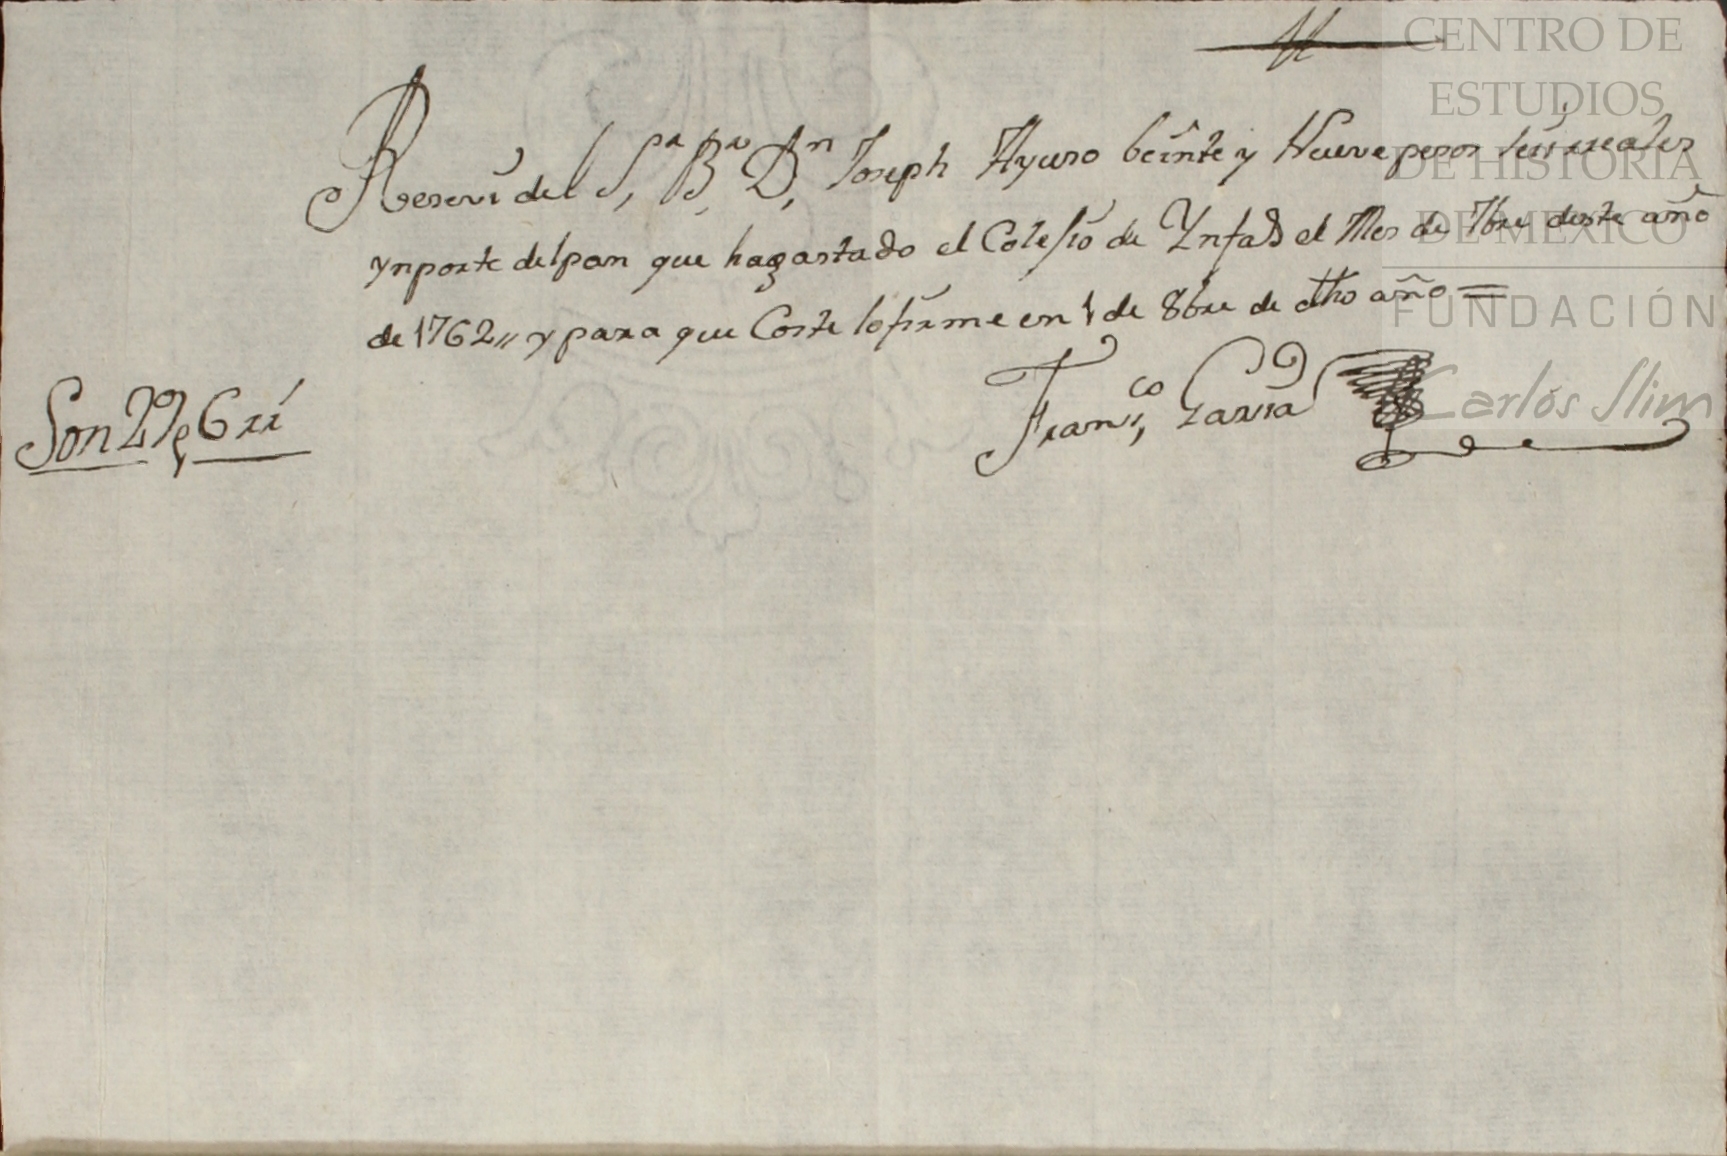 Reseví del S.r B.r D.n Joseph Ayuso beínte y Nueve pesos seís reales
ynporte del pan que hagastado el Colesío de Ynfa.s el Mes de 7bre deste año
de 1762,, y para que Coste lo fírme en 1 de 8bre de dho año =
Son 29 p 6 rr
Fran.co Garsía
CENTRO DE
ESTUDIOS
DE HISTORIA
DE MÉXICO
FUNDACIÓN
Carlos Slim